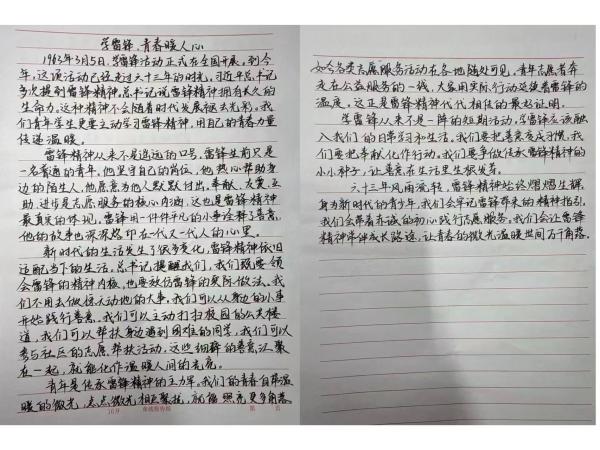 学雷锋，青春暖人心
1963年3月5日，学雷锋活动正式在全国开展。到今
年，这项活动已经走过六十三年的时光。习近平总书记
多次提到雷锋精神。总书记说雷锋精神拥有永久的
生命力。这种精神不会随着时代发展褪去光彩。我
们青年学生更要主动学习雷锋精神，用自己的青春力量
传递温暖。
雷锋精神从来不是遥远的口号。雷锋生前只是
一名普通的青年。他坚守自己的岗位，他热心帮助身
边的陌生人，他愿意为他人默默付出，奉献、友爱、互
助、进步是志愿服务的核心内涵，这也是雷锋精神
最真实的体现。雷锋用一件件平凡的小事诠释善意，
他的故事也深深烙印在一代又一代人的心里。
新时代的生活发生了很多变化，雷锋精神依旧
适配当下的生活。总书记提醒我们，我们既要领
会雷锋的精神内核，也要效仿雷锋的实际做法。我
们不用去做惊天动地的大事，我们可以从身边的小事
开始践行善意。我们可以主动打扫校园的公共楼
道，我们可以帮扶身边遇到困难的同学，我们可以
参与社区的志愿帮扶活动。这些细碎的善意汇聚
在一起，就能化作温暖人间的光亮。
青年是传承雷锋精神的主力军。我们的青春自带温
暖的微光，点点微光相互聚拢，就能照亮更多角落。
16开 单线报告纸 第 页
如今各类志愿服务活动在各地随处可见。青年志愿者奔
走在公益服务的一线，大家用实际行动延续着雷锋的
温度。这正是雷锋精神代代相传的最好证明。
学雷锋从来不是一阵的短期活动，学雷锋应该融
入我们的日常学习和生活。我们要把善意变成习惯，我
们要把奉献化作行动。我们要争做传承雷锋精神的
小小种子，让善意在生活里生根发芽。
六十三年风雨流转，雷锋精神始终熠熠生辉。
身为新时代的青少年，我们会牢记雷锋带来的精神指引。
我们会带着赤诚的初心践行志愿服务。我们会让雷锋
精神常伴成长路途，让青春的微光温暖世间万千角落。